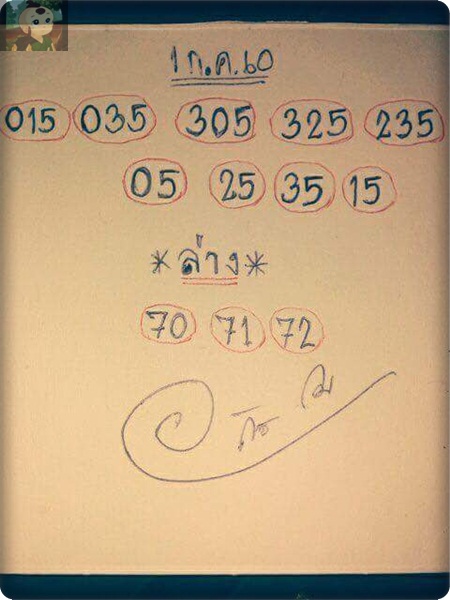 1 ก.ค.60
015 035 305 325 235
05 25 35 15
*ล่าง*
70 71 72